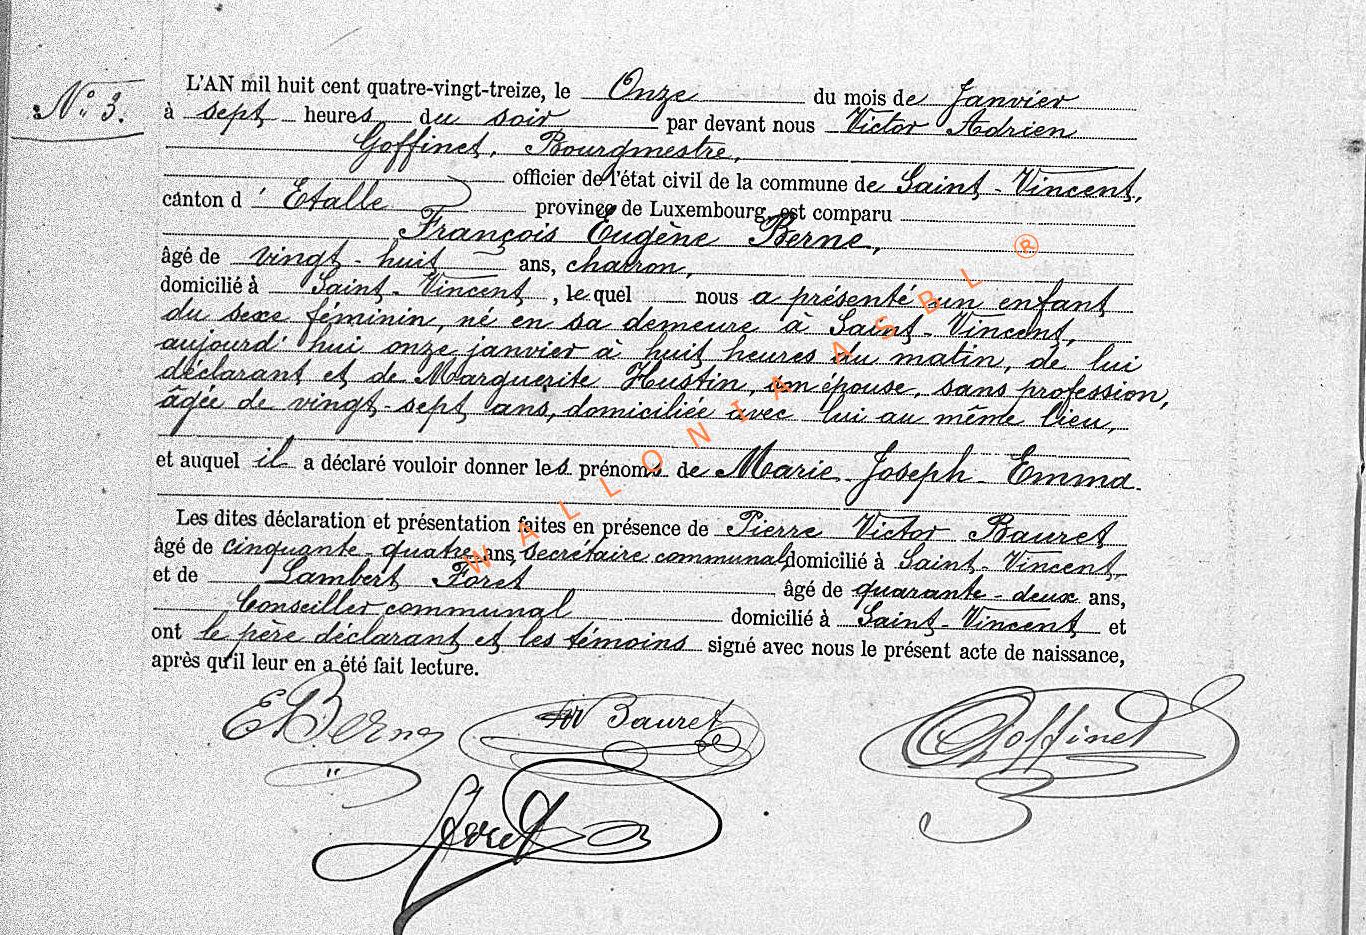 N.º 3.
L'AN mil huit cent quatre-vingt-treize, le Onze du mois de Janvier
à sept heures du soir par devant nous Victor Adrien
Goffinet, Bourgmestre,
officier de l'état civil de la commune de Saint-Vincent,
canton d'Etalle province de Luxembourg, est comparu
François Eugène Berne,
âgé de vingt-huit ans, charron,
domicilié à Saint-Vincent, lequel nous a présenté un enfant
du sexe féminin, né en sa demeure à Saint-Vincent,
aujourd'hui onze janvier à huit heures du matin, de lui
déclarant et de Marguerite Hustin, son épouse, sans profession,
âgée de vingt-sept ans, domiciliée avec lui au même lieu,
et auquel il a déclaré vouloir donner les prénoms de Marie Joseph Emma.
Les dites déclaration et présentation faites en présence de Pierre Victor Bauret
âgé de cinquante-quatre ans, secrétaire communal, domicilié à Saint-Vincent,
et de Lambert Foret âgé de quarante-deux ans,
Conseiller communal domicilié à Saint-Vincent et
ont le père déclarant et les témoins signé avec nous le présent acte de naissance,
après qu'il leur en a été fait lecture.
E Berne Bauret Goffinet
Foret
WALLONIA ASBL ®